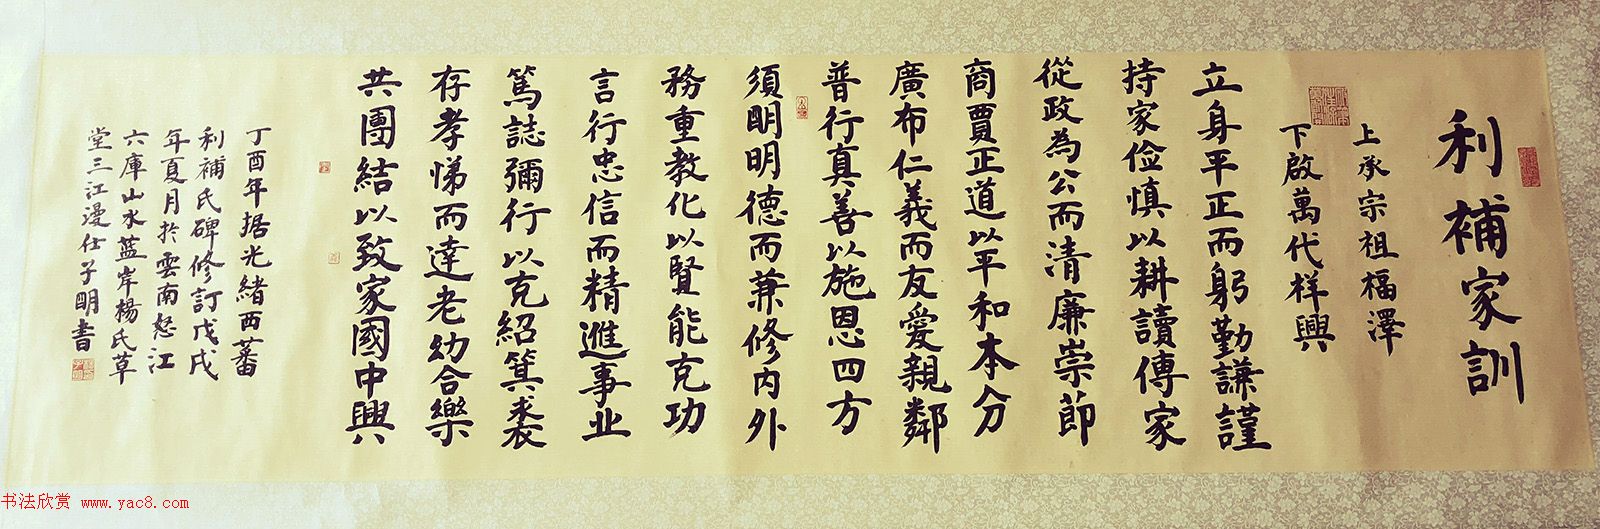 利補家訓
上承宗祖福澤
下啟萬代祥興
立身平正而躬勤謙謹
持家儉慎以耕讀傳家
從政為公而清廉崇節
商賈正道以平和本分
廣布仁義而友愛親鄰
普行真善以施恩四方
須明明德而兼修内外
務重教化以賢能克功
言行忠信而精進事业
篤誌彌行以克紹箕裘
存孝悌而達老幼合樂
共團結以致家國中興
丁酉年据光緒西蕃
利補氏碑修訂戊戌
年夏月於雲南怒江
六庫山水蓝岸楊氏草
堂三江漫仕子明書
书法欣赏 www.yac8.com